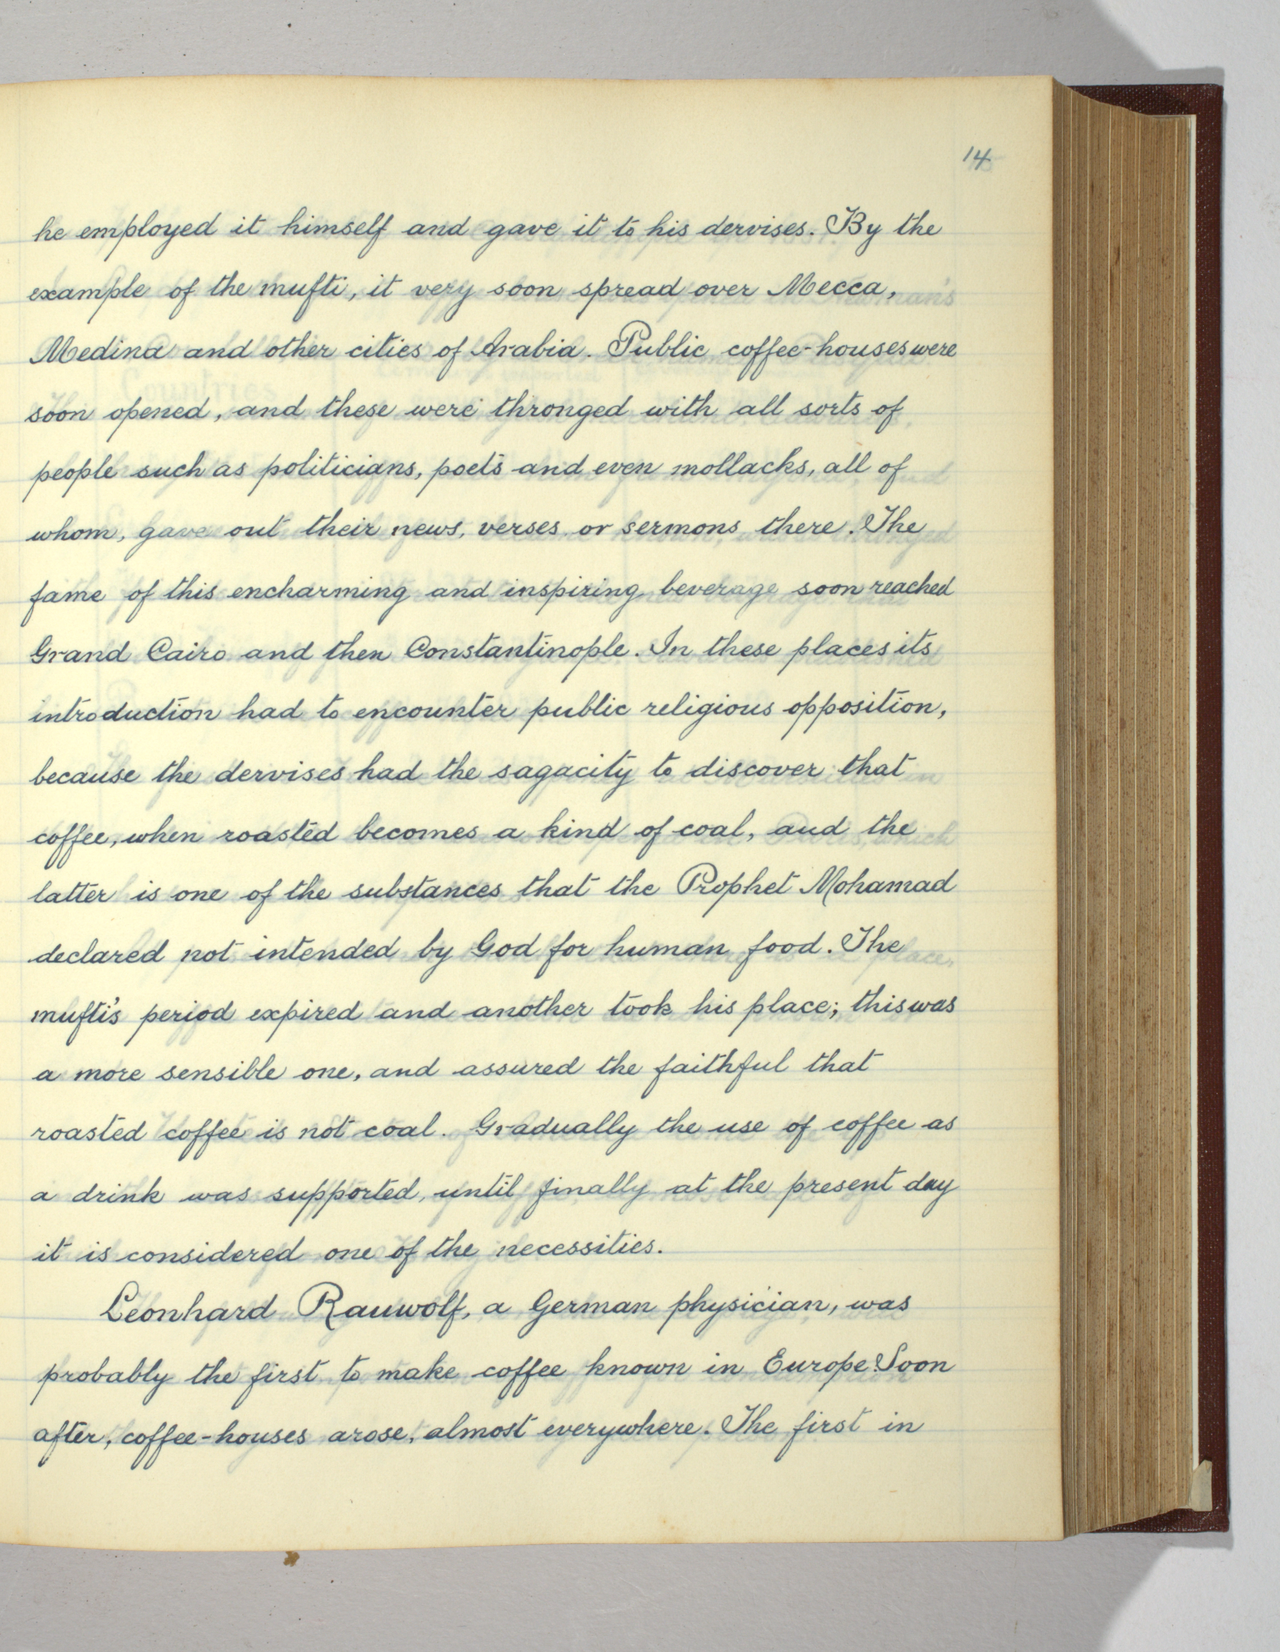 14
he employed it himself and gave it to his dervises. By the
example of the mufti, it very soon spread over Mecca,
Medina and other cities of Arabia. Public coffee-houses were
soon opened, and these were thronged with all sorts of
people such as politicians, poets and even mollacks, all of
whom, gave out their news, verses or sermons there. The
fame of this encharming and inspiring beverage soon reached
Grand Cairo and then Constantinople. In these places its
introduction had to encounter public religious opposition,
because the dervises had the sagacity to discover that
coffee, when roasted becomes a kind of coal, and the
latter is one of the substances that the Prophet Mohamad
declared not intended by God for human food. The
mufti's period expired and another took his place; this was
a more sensible one, and assured the faithful that
roasted coffee is not coal. Gradually the use of coffee as
a drink was supported, until finally at the present day
it is considered one of the necessities.
Leonhard Rauwolf, a German physician, was
probably the first to make coffee known in Europe. Soon
after, coffee-houses arose, almost everywhere. The first in